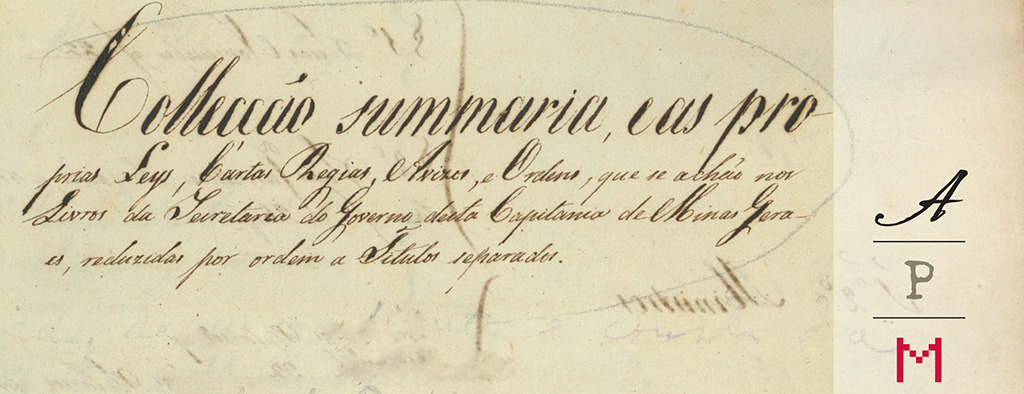 Collecção summaria, e as pro-
prias Leys, Cartas Regias, Avizos, e Ordens, que se achão nos
Livros da Secretaria do Governo desta Capitania de Minas Gera-
es, reduzidas por ordem a Titulos separados.
A
P
M